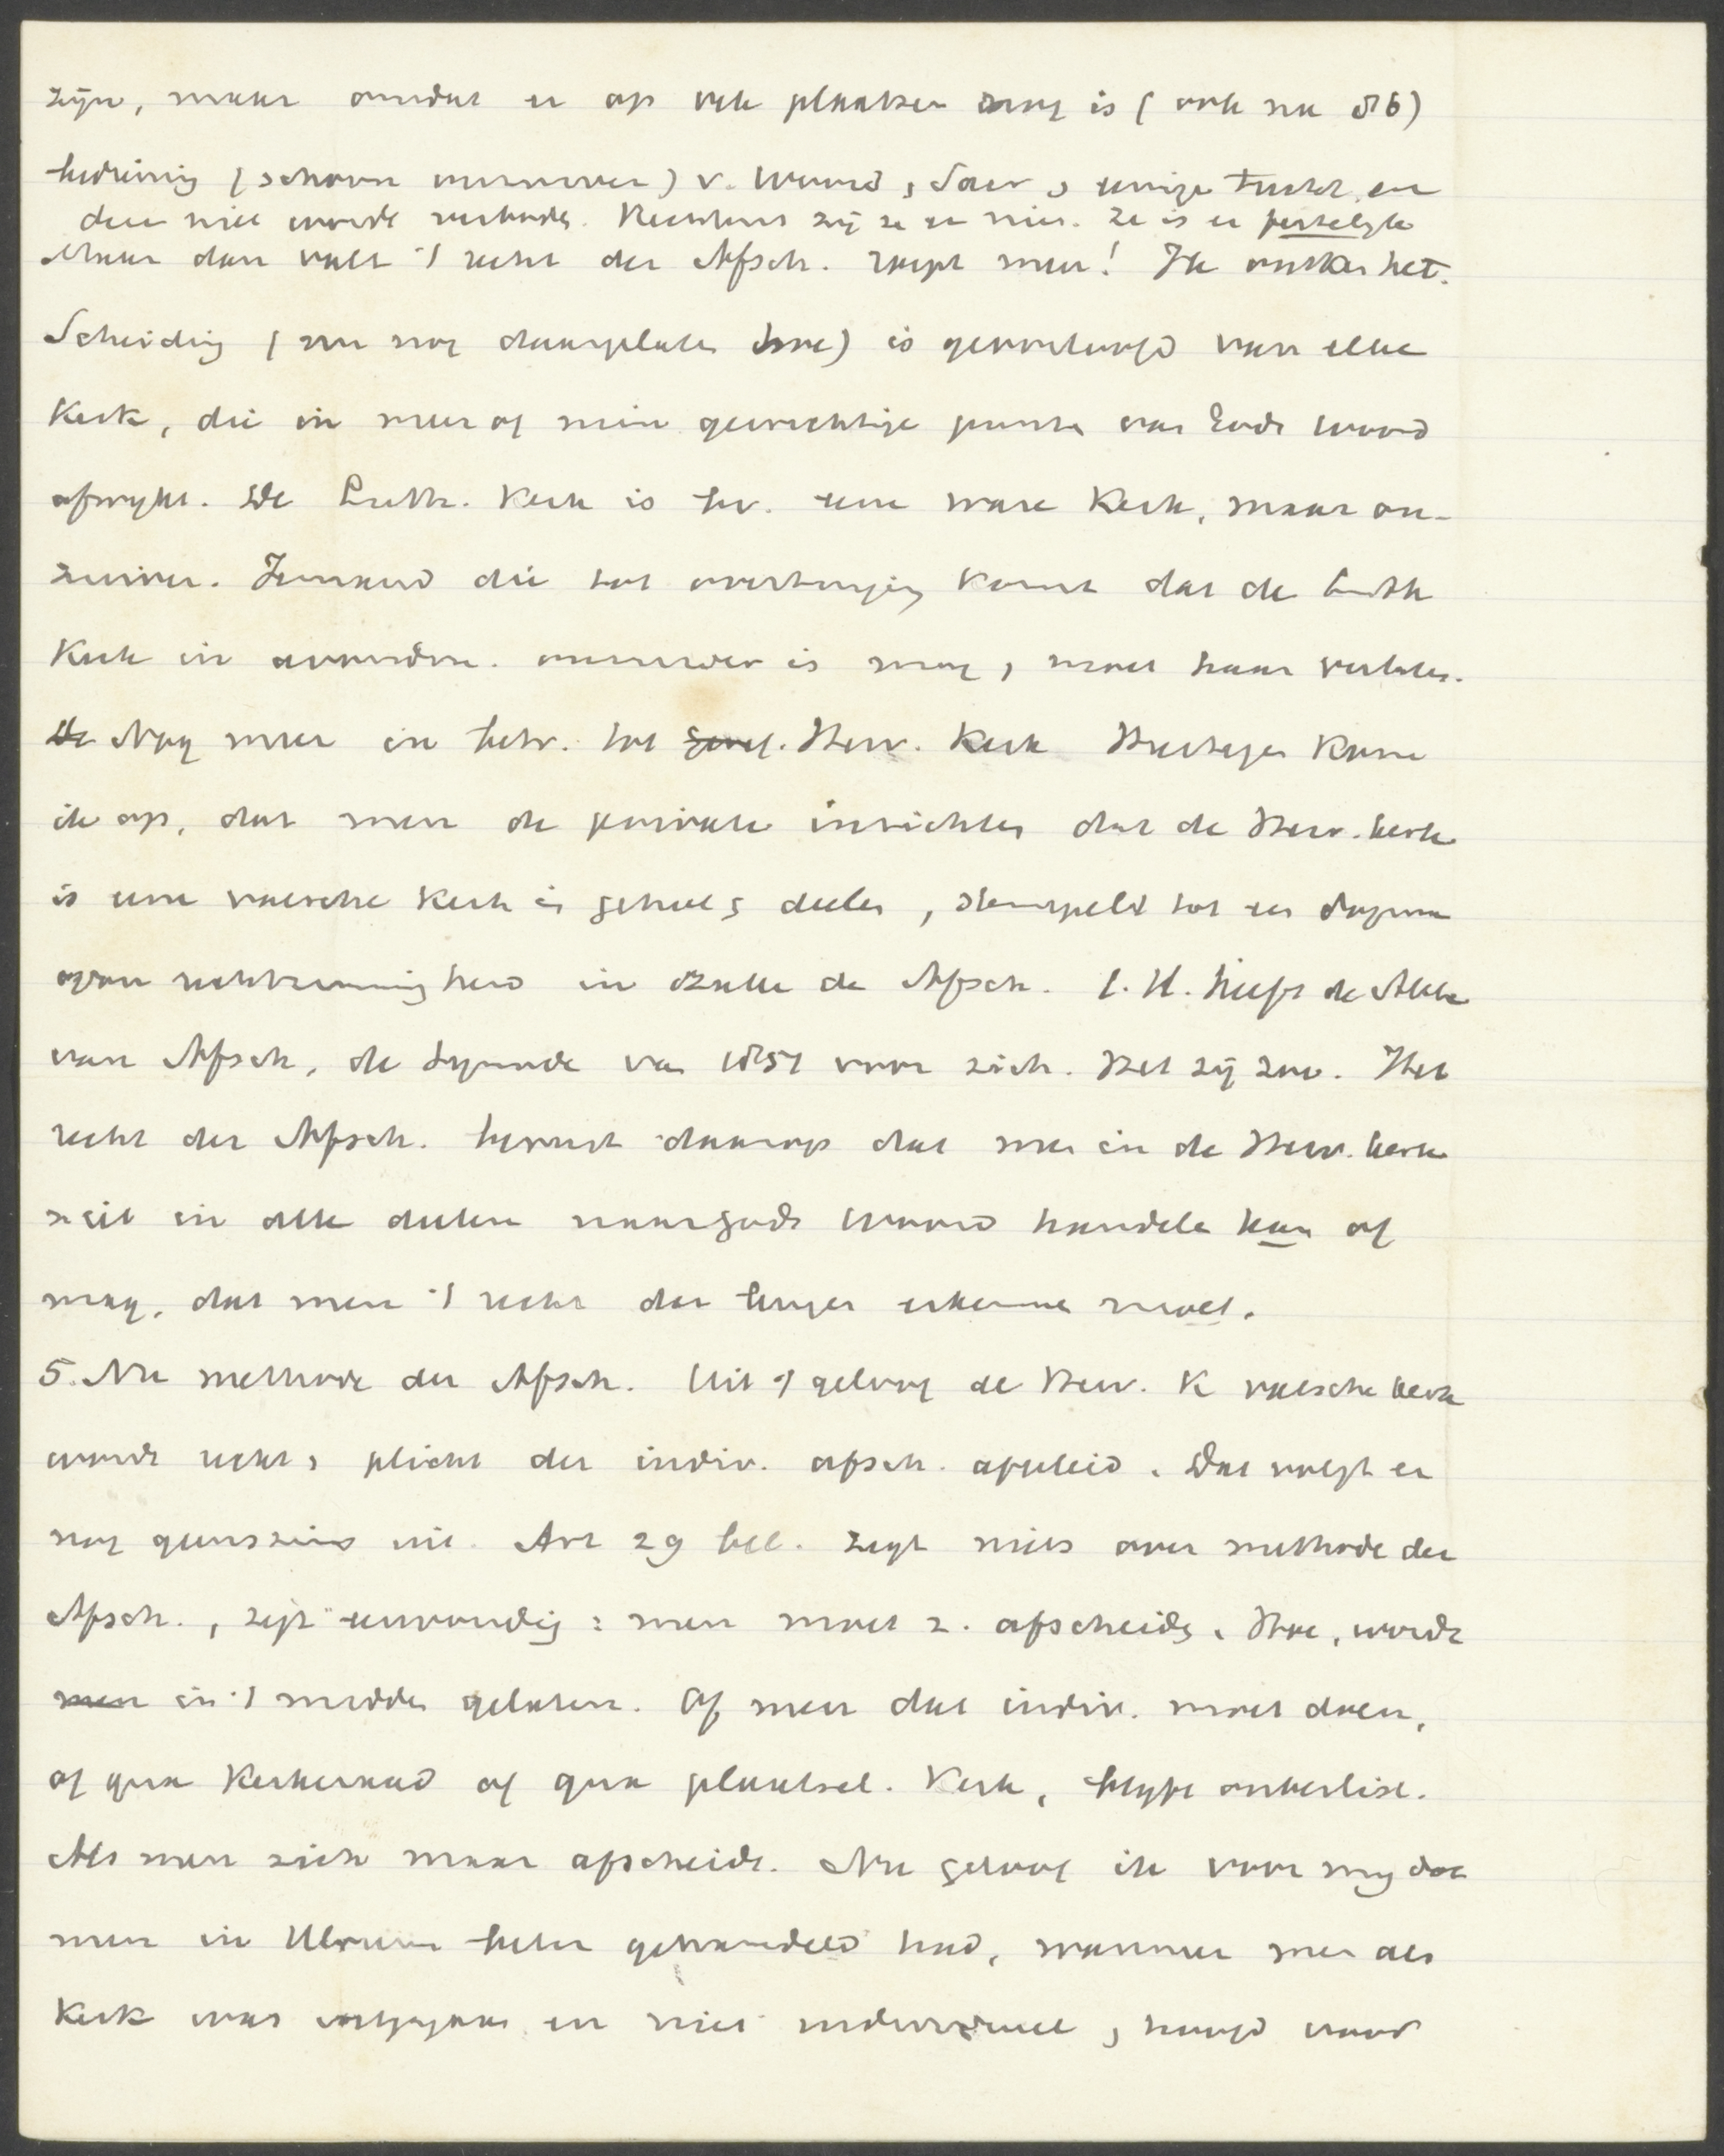 zijn, maar omdat er op vele plaatsen nog is (ook na 86)
bediening (schoon onzuiver) v. Woord, Sacr, eenige tucht, en
deze niet wordt verboden. Rechtens zij ze er niet. Ze is er feitelijk
Maar dan valt 't recht der Afsch. roept men! Ik ontken het.
Scheiding (nu nog daargelaten hoe) is geoorloofd van elke
Kerk, die in meer of min gewichtige punten van Gods woord
afwijkt. De Luth. Kerk is bv. eene ware Kerk, maar on-
zuiver. Iemand die tot overtuiging komt dat de Luth
Kerk in avondm. onzuiver is mag, moet haar verlaten.
De Nog meer in betr. tot geref. Herv. Kerk Hiertegen kom
ik op, dat men de private inzichten dat de Herv. kerk
is eene valsche Kerk in geheel & deelen, stempelt tot een dogma
van rechtzinnigheid in zake de Afsch. C.H. heeft de Akte
van Afsch, de Synode van 1851 voor zich. Het zij zoo. Het
recht der Afsch. berust daarop dat men in de Herv. kerk
niet in alle deelen naar Gods Woord handelen kan of
mag, dat men 't recht der erkennen moet.
5. Nu methode der Afsch. Uit 't geloof de Herv. K valsche kerk
wordt recht & plicht der indiv. afsch. afgeleid. Dat volgt er
nog geenszins uit. Art 29 bel. zegt niets over methode der
Afsch., zegt eenvoudig: men moet z. afscheiden. Hoe, wordt
men in 't midden gelaten. Of men dat indiv. moet doen,
of qua Kerkeraad of qua plaatsel. Kerk, blijft onbeslist.
Als men zich maar afscheidt. Nu geloof ik voor mij dat
men in Ulrum beter gehandeld had, wanneer men als
Kerk was en niet individueel, hoofd voor